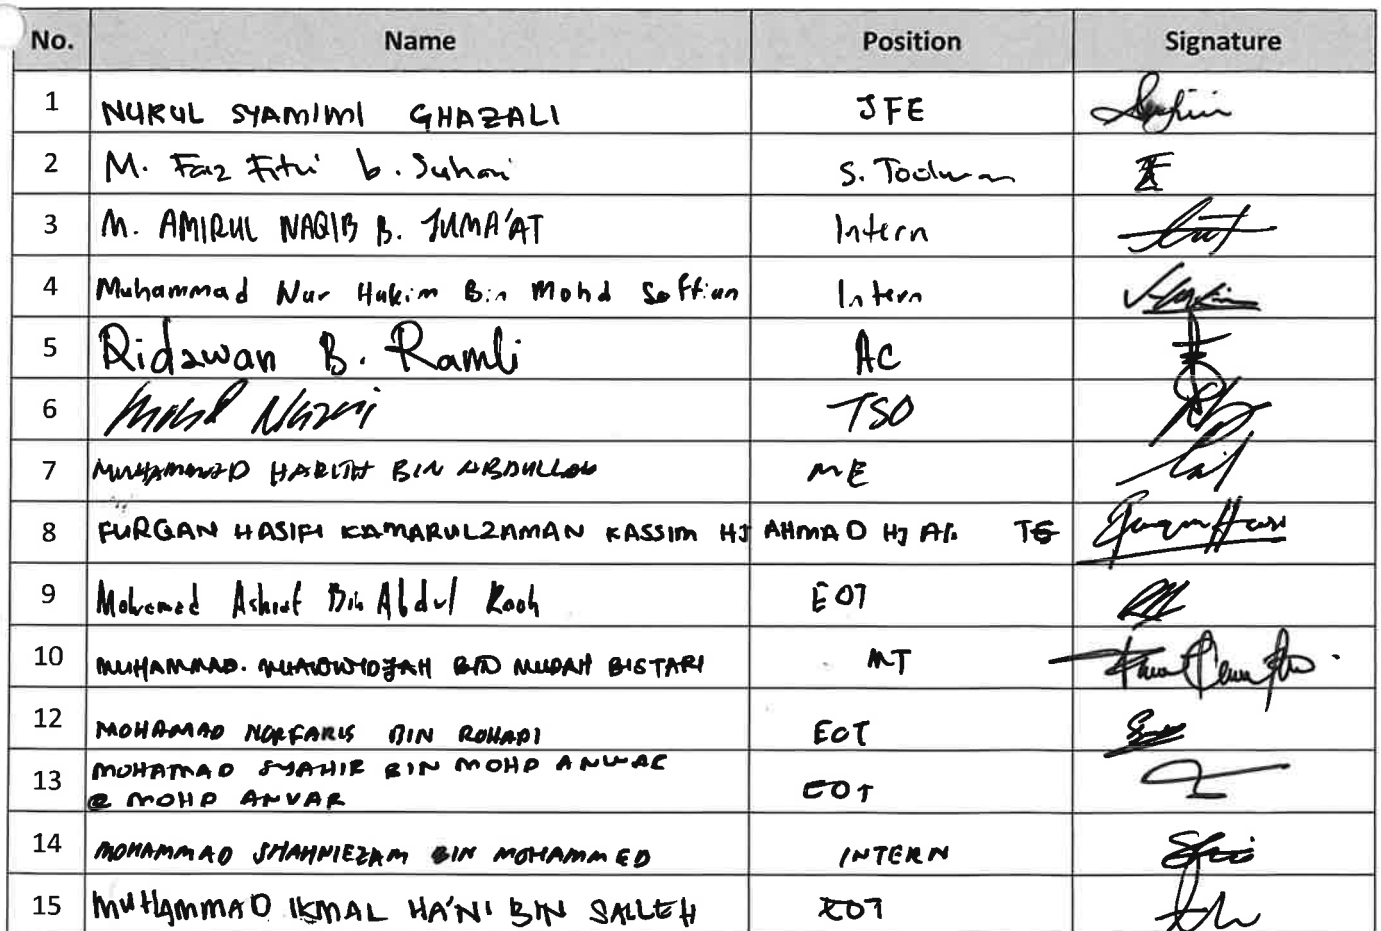 No. Name Position Signature
1 NURUL SYAMIMI GHAZALI JFE
2 M. Faiz Fitri b. Suhari S. Toolman
3 M. AMIRUL NAQIB B. JUMA'AT Intern
4 Muhammad Nur Hakim Bin Mohd Soffian Intern
5 Ridzwan B. Ramli AC
6 Mohd Nazri TSO
7 MUHAMMAD HARITH BIN ABDULLAH ME
8 FURQAN HASIFI KAMARULZAMAN KASSIM HJ AHMAD HJ
9 Mohamed Ashraf Bin Abdul EOT
10 MUHAMMAD. BIN MUDAH BISTARI MT
12 MOHAMAD NORFARIS BIN ROHADI EOT
13 MOHAMAD SYAHIR BIN MOHD ANUAR
@ MOHD ANVAR EOT
14 MOHAMMAD SHAHNIEZAM BIN MOHAMMED INTERN
15 MUHAMMAD IKMAL HA'NI BIN SALLEH EOT